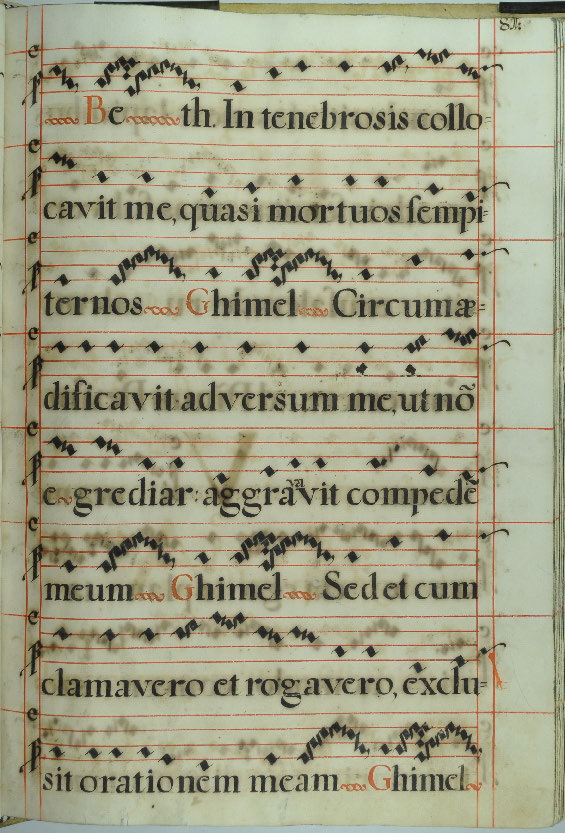 Beth. In tenebrosis collo-
cavit me, quasi mortuos sempi-
ternos Ghimel Circumæ-
dificavit adversum me, ut nõ
egrediar: aggravavit compedẽ
meum Ghimel Sed et cum
clamavero et rogavero, exclu-
sit orationem meam Ghimel.